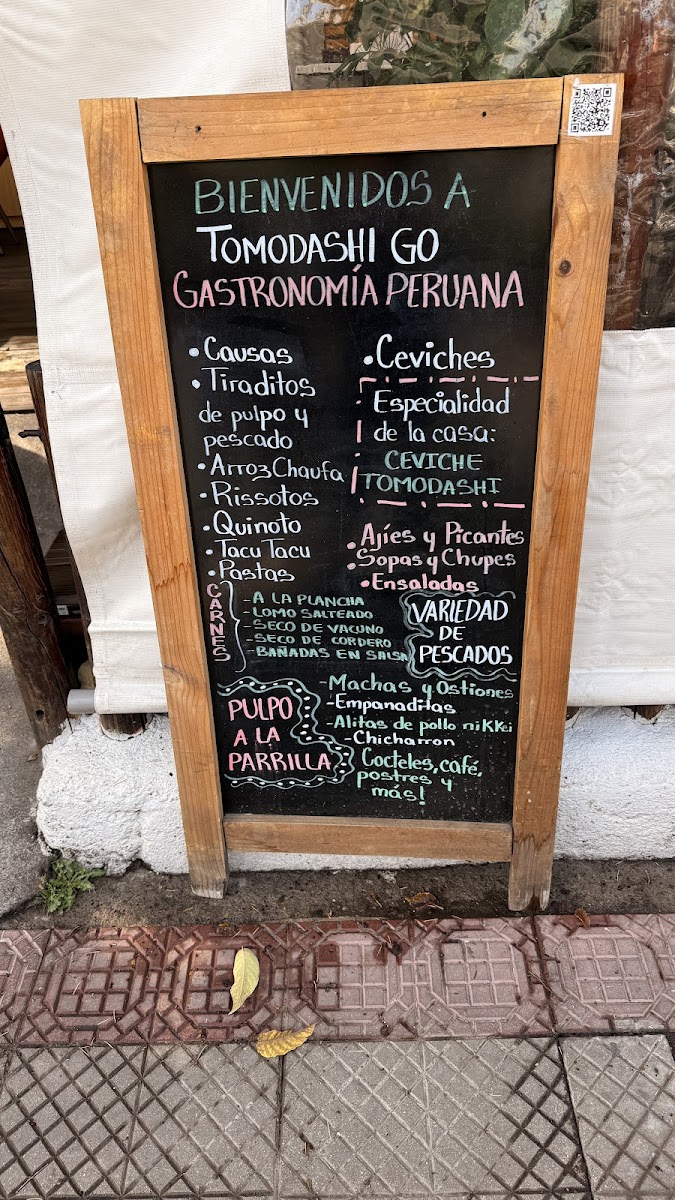 BIENVENIDOS A
TOMODASHI GO
GASTRONOMÍA PERUANA
• Causas
• Tiraditos
de pulpo y
pescado
• Arroz Chaufa
• Rissotos
• Quinoto
• Tacu Tacu
• Pastas
CARNES
- A LA PLANCHA
- LOMO SALTEADO
- SECO DE VACUNO
- SECO DE CORDERO
- BAÑADAS EN SALSA
PULPO
A LA
PARRILLA
• Ceviches
Especialidad
de la casa:
CEVICHE
TOMODASHI
• Ajíes y Picantes
• Sopas y Chupes
• Ensaladas
VARIEDAD
DE
PESCADOS
- Machas y Ostiones
- Empanaditas
- Alitas de pollo nikkei
- Chicharron
Cocteles, café,
postres y
más!